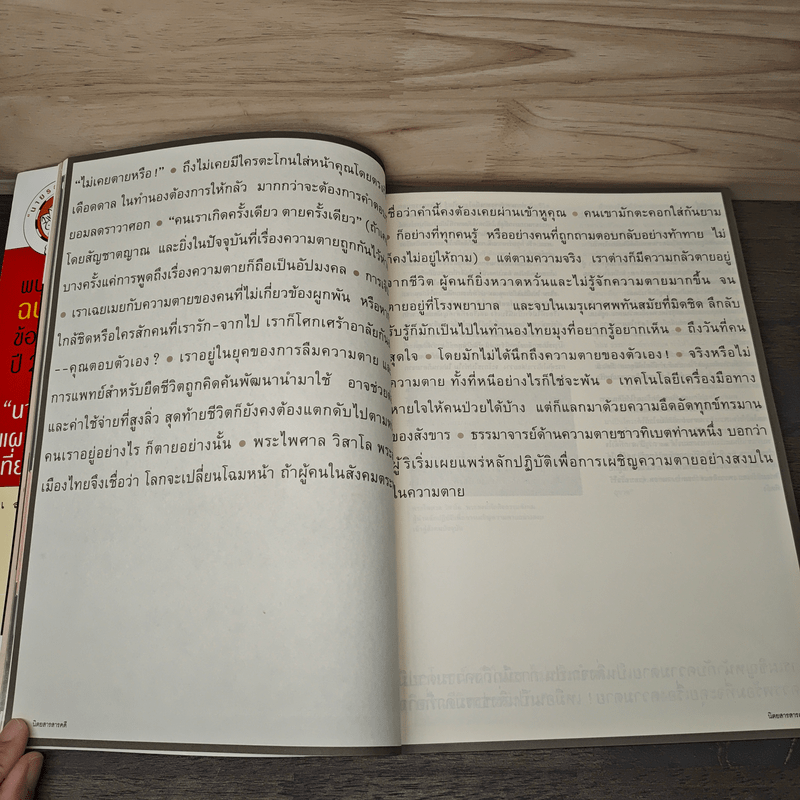 “ไม่เคยตายหรือ!” ● ถึงไม่เคยมีใครตะโกนใส่หน้าคุณโดยตรง เชื่อว่าคำนี้คงต้องเคยผ่านเข้าหูคุณ ● คนเขามักตะคอกใส่กันยาม
เดือดดาล ในทำนองต้องการให้กลัว มากกว่าจะต้องการคำตอบ ก็อย่างที่ทุกคนรู้ หรืออย่างคนที่ถูกถามตอบกลับอย่างท้าทาย ไม่
ยอมลดราวาศอก ● “คนเราเกิดครั้งเดียว ตายครั้งเดียว” ก็คงไม่อยู่ให้ถาม) ● แต่ตามความจริง เราต่างก็มีความกลัวตายอยู่
โดยสัญชาตญาณ และยิ่งในปัจจุบันที่เรื่องความตายถูกกันไว้ จากชีวิต ผู้คนก็ยิ่งหวาดหวั่นและไม่รู้จักความตายมากขึ้น จน
บางครั้งแค่การพูดถึงเรื่องความตายก็ถือเป็นอัปมงคล ● ตายอยู่ที่โรงพยาบาล และจบในเมรุเผาศพทันสมัยที่มิดชิด ลึกลับ
● เราเฉยเมยกับความตายของคนที่ไม่เกี่ยวข้องผูกพัน รับรู้ก็มักเป็นไปในทำนองไทยมุงที่อยากรู้อยากเห็น ● ถึงวันที่คน
ใกล้ชิดหรือใครสักคนที่เรารัก-จากไป เราก็โศกเศร้าอาลัยกัน สุดใจ ● โดยมักไม่ได้นึกถึงความตายของตัวเอง! ● จริงหรือไม่
--คุณตอบตัวเอง? ● เราอยู่ในยุคของการลืมความตาย ความตาย ทั้งที่หนีอย่างไรก็ใช่จะพ้น ● เทคโนโลยีเครื่องมือทาง
การแพทย์สำหรับยืดชีวิตถูกคิดค้นพัฒนานำมาใช้ อาจช่วย หายใจให้คนป่วยได้บ้าง แต่ก็แลกมาด้วยความอึดอัดทุกข์ทรมาน
และค่าใช้จ่ายที่สูงลิ่ว สุดท้ายชีวิตก็ยังคงต้องแตกดับไปตาม ของสังขาร ● ธรรมาจารย์ด้านความตายชาวทิเบตท่านหนึ่ง บอกว่า
คนเราอยู่อย่างไร ก็ตายอย่างนั้น ● พระไพศาล วิสาโล ผู้ริเริ่มเผยแพร่หลักปฏิบัติเพื่อการเผชิญความตายอย่างสงบใน
เมืองไทยจึงเชื่อว่า โลกจะเปลี่ยนโฉมหน้า ถ้าผู้คนในสังคม ในความตาย
นิตยสารสารคดี